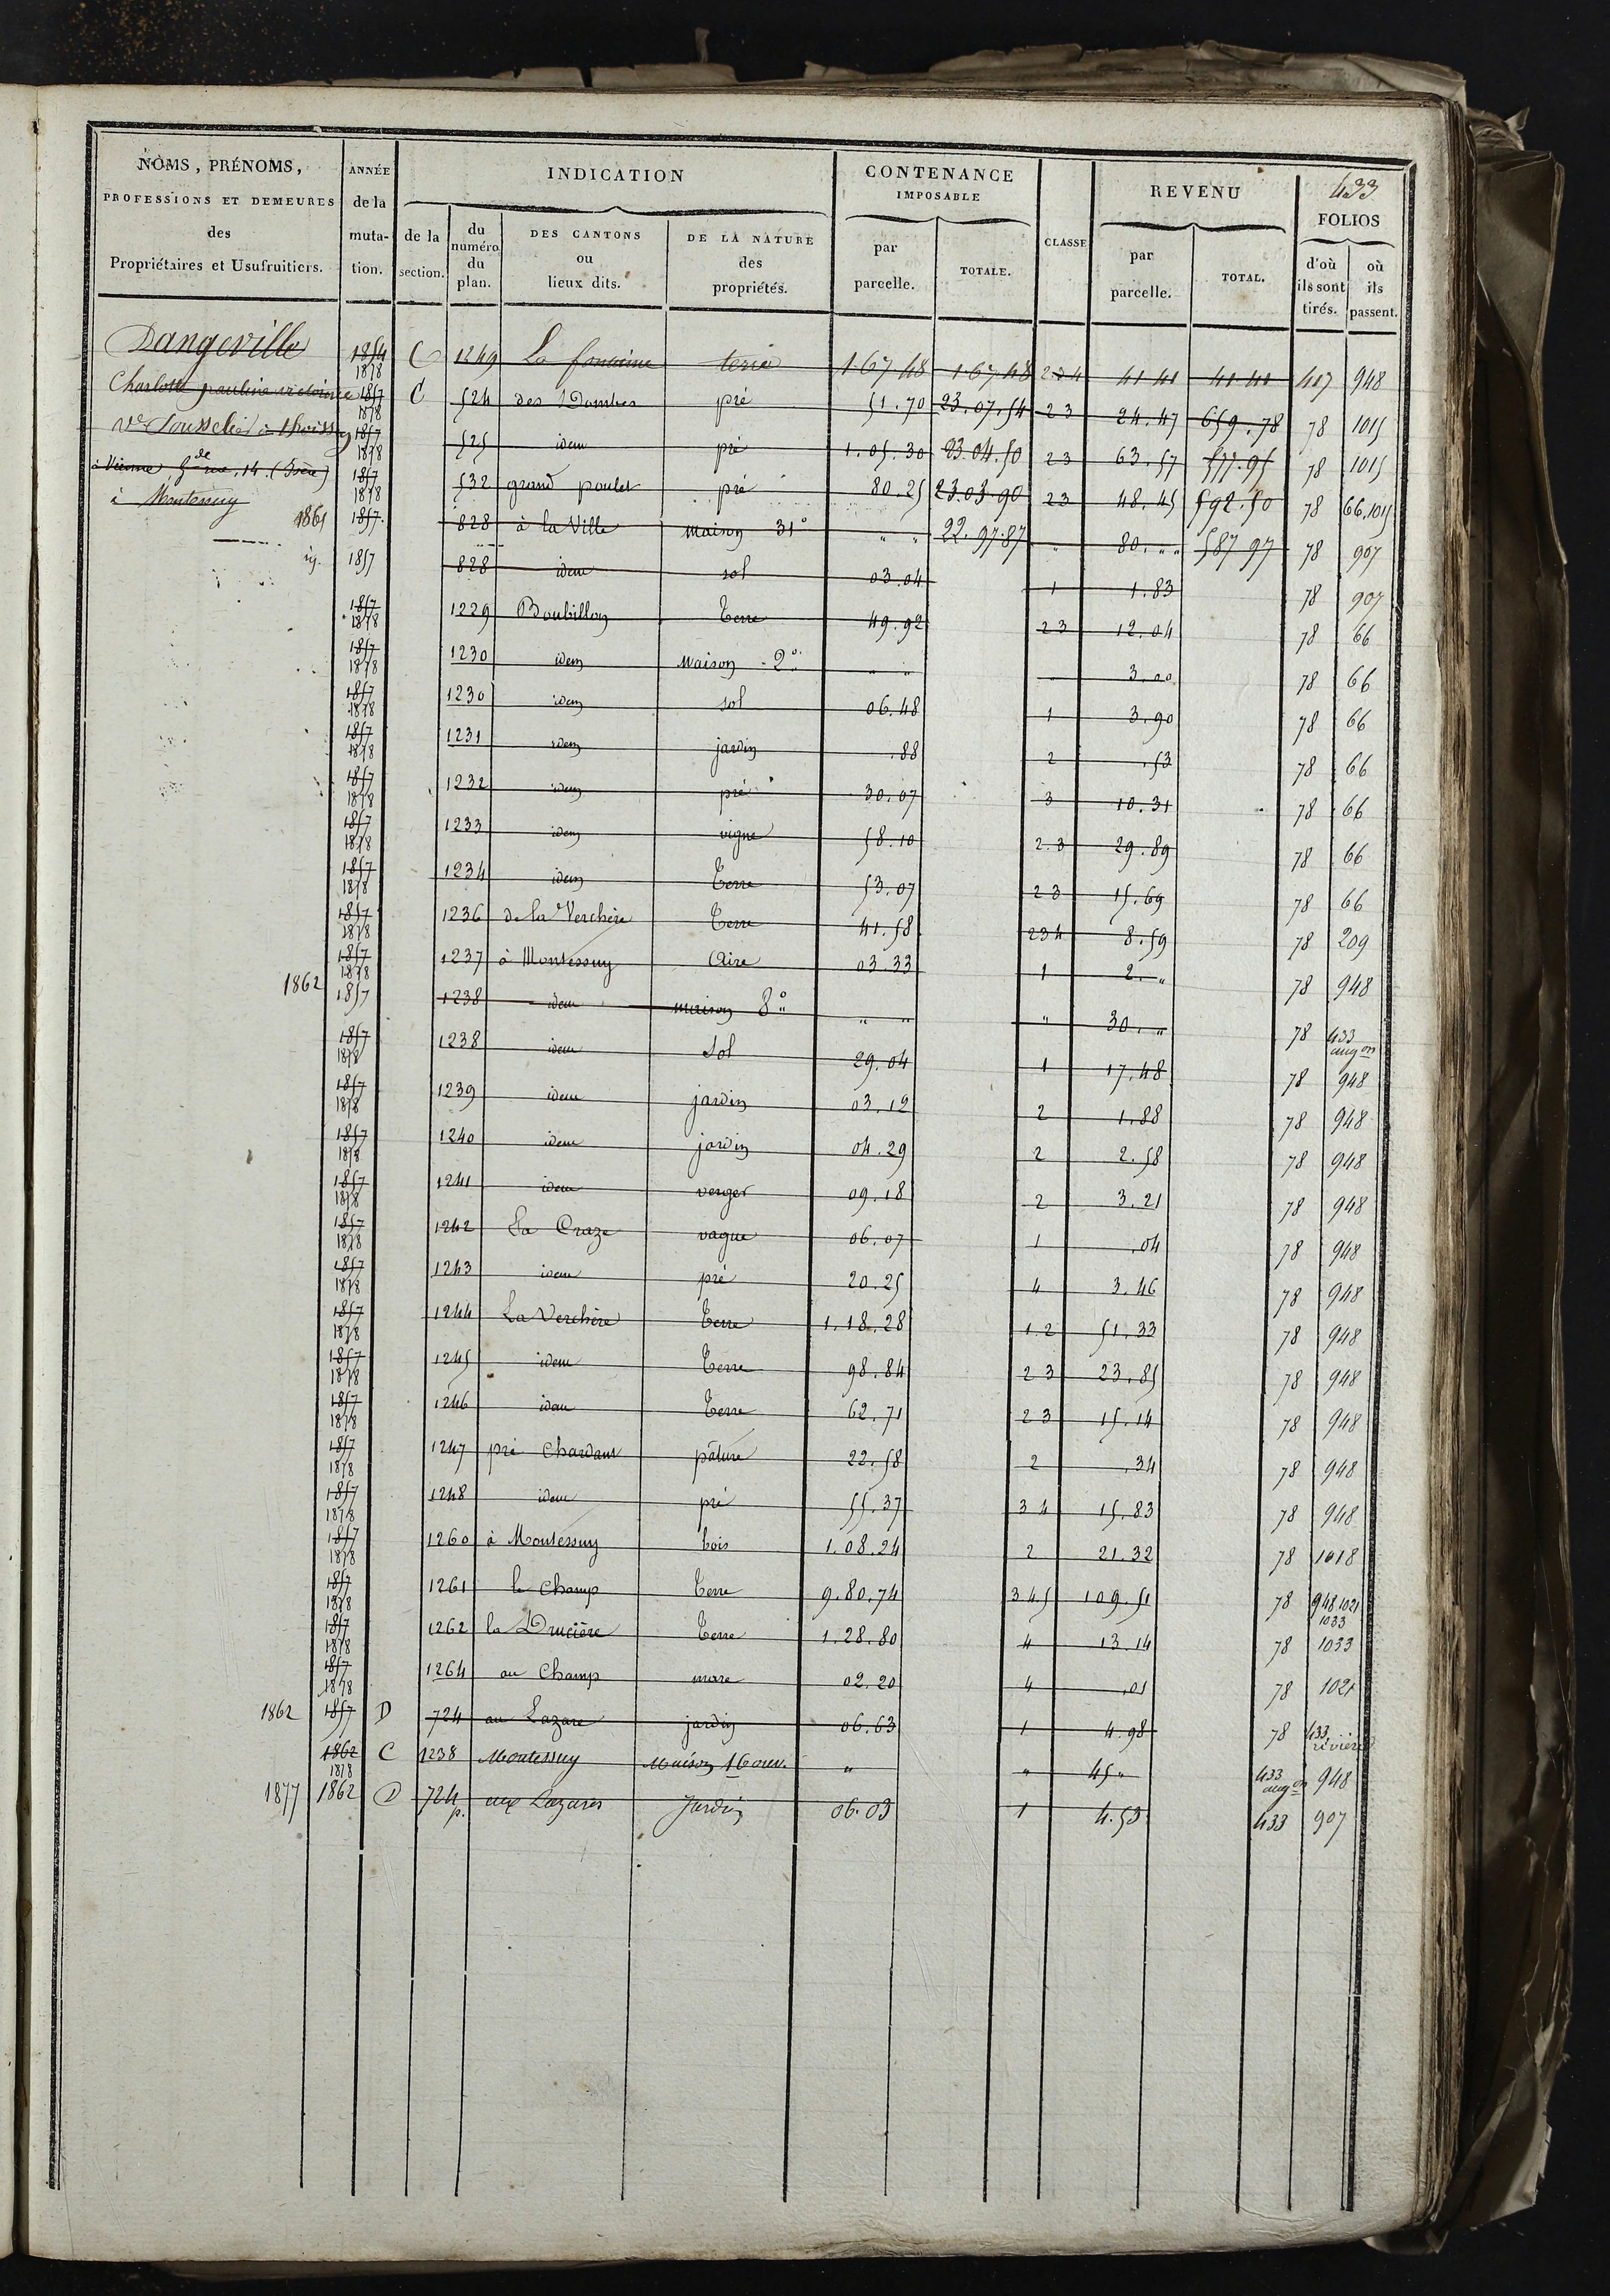 433
NOMS, PRÉNOMS, PROFESSIONS ET DEMEURES des Propriétaires et Usufruitiers.
ANNÉE de la muta- tion.
INDICATION
de la section.
du numéro du plan.
DES CANTONS ou lieux dits.
DE LA NATURE des propriétés.
CONTENANCE IMPOSABLE
par parcelle.
TOTALE.
CLASSE
REVENU
par parcelle.
TOTAL.
FOLIOS
d'où ils sont tirés.
où ils passent.
Dangeville
Charlotte pauline victoire
Ve Sousselier à Thoissey
à Vienne gde rue, 14. (Isère)
à Montessuy
1854 1878 C 1249 La fontaine terre 1 67 48 1 67 48 2 3 4 41 41 41 41 417 948
1857 1878 C 524 des Dombes pré 51.70 23.07.54 2 3 24.47 659.78 78 1015
1857 1878 525 idem pré 1.05.30 23.04.50 2 3 63.57 577.95 78 1015
1857 1878 532 grand poulet pré 80.25 23.03.90 2 3 48.45 592.50 78 66.1015
1861 1857. 828 à la Ville Maison 31° " " 22.97.87 " 80. " " 587 97 78 907
ig. 1857 828 idem sol 03.04 1 1.83 78 907
1857 1878 1229 Boubillon Terre 49.92 2 3 12.04 78 66
1857 1878 1230 idem Maison 2° " " 3.00 78 66
1857 1878 1230 idem sol 06.48 1 3.90 78 66
1857 1878 1231 idem jardin .88 2 .53 78 66
1857 1878 1232 idem pré 30.07 3 10.31 78 66
1857 1878 1233 idem vigne 58.10 2.3 29.89 78 66
1857 1878 1234 idem Terre 53.07 2 3 15.69 78 66
1857 1878 1236 de la Verchère Terre 41.58 2 3 4 8.59 78 209
1857 1878 1237 à Montessuy Aire 03.33 1 2. " 78 948
1862 1857 1238 idem maison 8° " " " 30. " 78 433 augon
1857 1878 1238 idem Sol 29.04 1 17.48 78 948
1857 1878 1239 idem jardin 03.12 2 1.88 78 948
1857 1878 1240 idem jardin 04.29 2 2.58 78 948
1857 1878 1241 idem verger 09.18 2 3.21 78 948
1857 1878 1242 La Craze vague 06.07 1 .04 78 948
1857 1878 1243 idem pré 20.25 4 3.46 78 948
1857 1878 1244 La Verchère Terre 1.18.28 1.2 51.33 78 948
1857 1878 1245 idem Terre 98.84 2 3 23.85 78 948
1857 1878 1246 idem Terre 62.71 2 3 15.14 78 948
1857 1878 1247 pré Chardant pâture 22.58 2 .34 78 948
1857 1878 1248 idem pré 55.37 3 4 15.83 78 948
1857 1878 1260 à Montessuy bois 1.08.24 2 21.32 78 1018
1857 1878 1261 le Champ Terre 9.80.74 3 4 5 109.51 78 948.1021 1033
1857 1878 1262 la Drucière Terre 1.28.80 4 13.14 78 1033
1857 1878 1264 au Champ mare 02.20 4 .01 78 1021
1862 1857 D 724 au Lazare jardin 06.63 1 4.98 78 433
1862 1878 C 1238 Montessuy Maison 16 ouv. " " 45 " 433 augon 948
1877 1862 D 724 p. aux Lazares Jardin 06.03 1 4.53 433 907